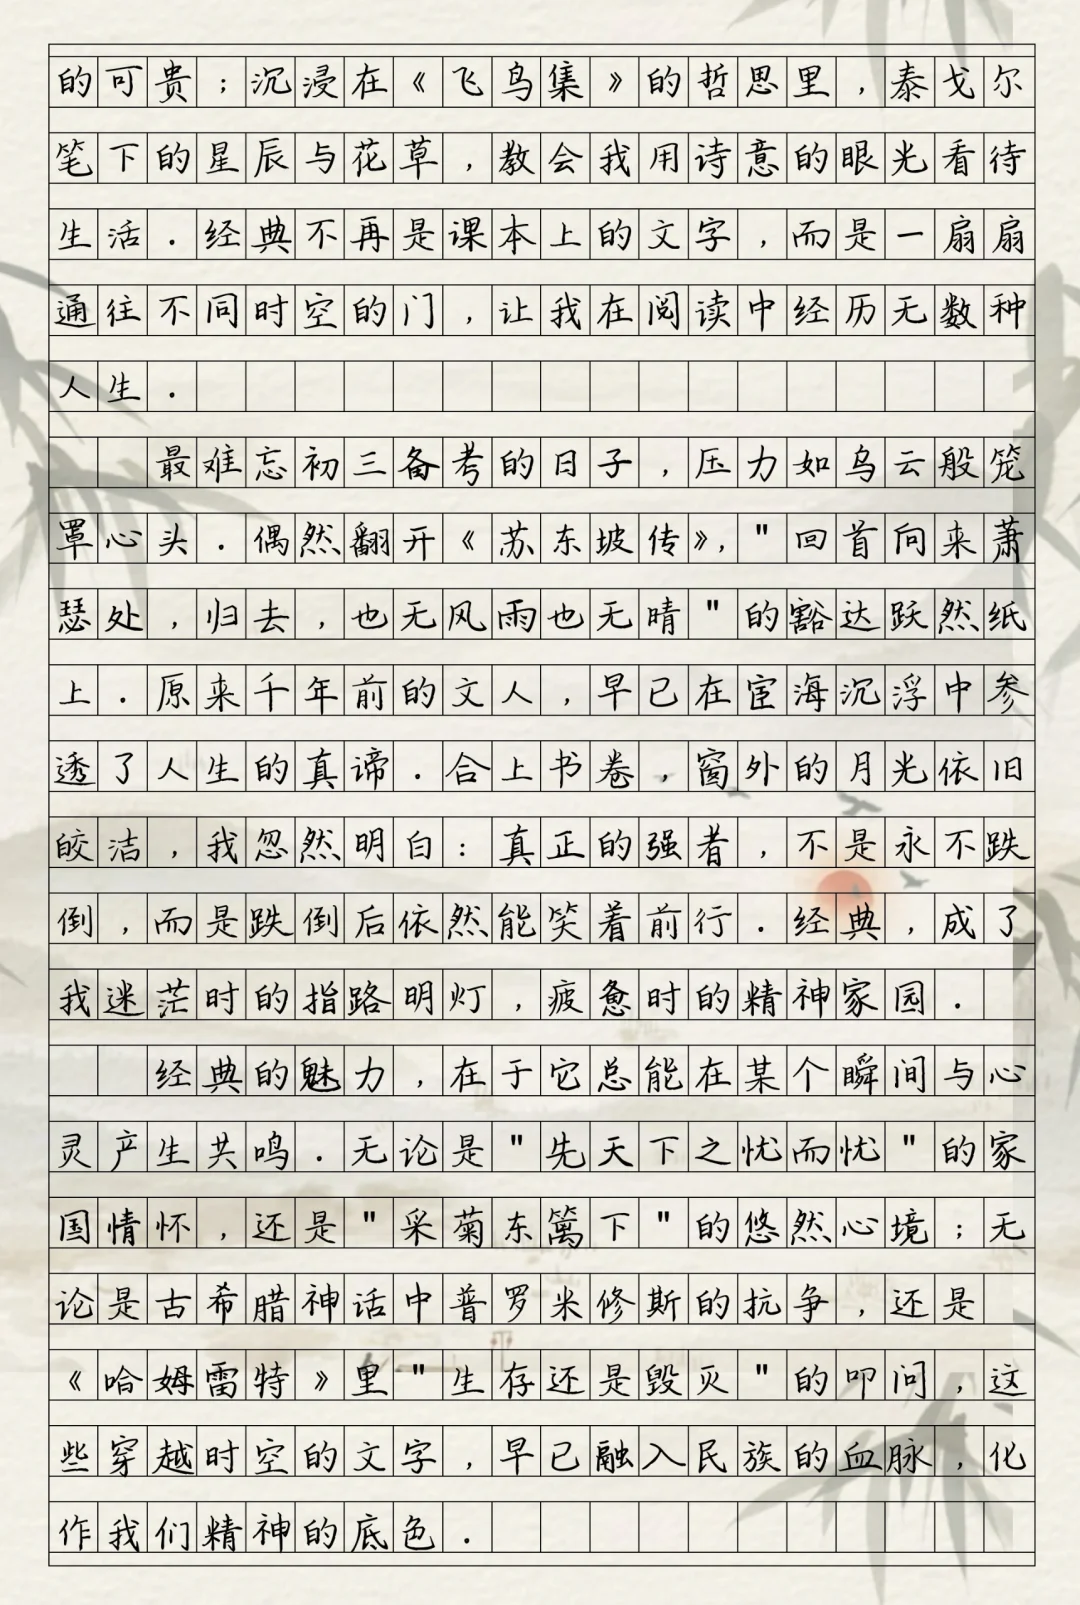 的可贵；沉浸在《飞鸟集》的哲思里，泰戈尔
笔下的星辰与花草，教会我用诗意的眼光看待
生活．经典不再是课本上的文字，而是一扇扇
通往不同时空的门，让我在阅读中经历无数种
人生．
最难忘初三备考的日子，压力如乌云般笼
罩心头．偶然翻开《苏东坡传》，"回首向来萧
瑟处，归去，也无风雨也无晴"的豁达跃然纸
上．原来千年前的文人，早已在宦海沉浮中参
透了人生的真谛．合上书卷，窗外的月光依旧
皎洁，我忽然明白：真正的强者，不是永不跌
倒，而是跌倒后依然能笑着前行．经典，成了
我迷茫时的指路明灯，疲惫时的精神家园．
经典的魅力，在于它总能在某个瞬间与心
灵产生共鸣．无论是"先天下之忧而忧"的家
国情怀，还是"采菊东篱下"的悠然心境；无
论是古希腊神话中普罗米修斯的抗争，还是
《哈姆雷特》里"生存还是毁灭"的叩问，这
些穿越时空的文字，早已融入民族的血脉，化
作我们精神的底色．